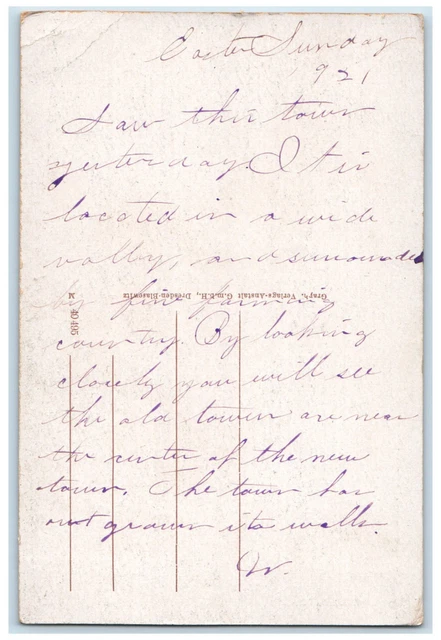 Easter Sunday
921
Saw this town
yesterday. It is
located in a wide
valley, and surrounded
by fine farming
Graph. Verlags-Anstalt G.m.b.H., Dresden-Blasewitz
M 40 495
country. By looking
closely you will see
the old towers are near
the center of the new
town. The town has
out grown its walls.
W.